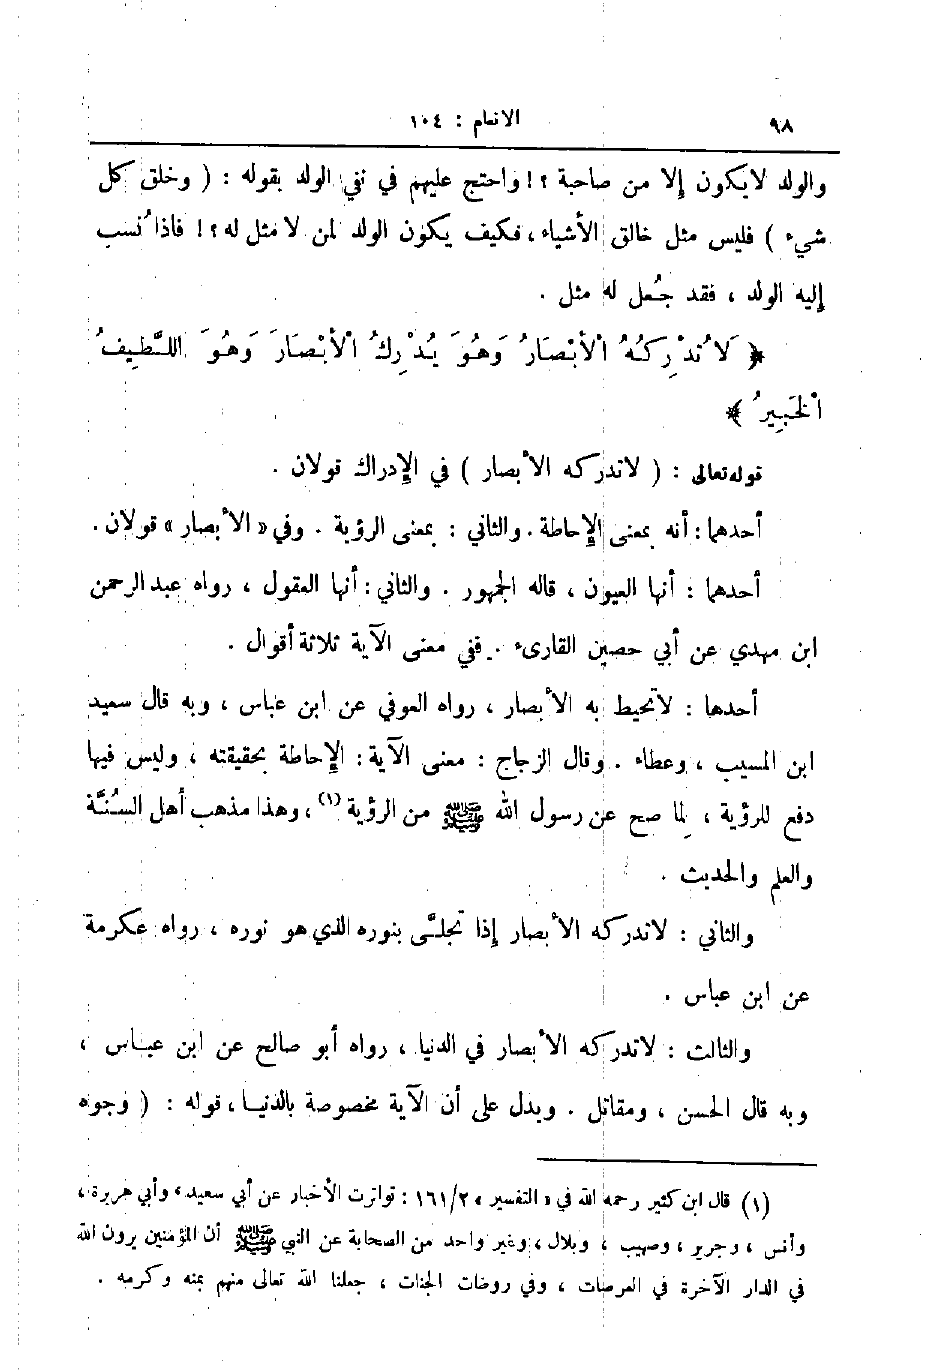 ٩٨ الانعام : ١٠٤
والولد لايكون إلا من صاحبة ؟! واحتج عليهم في نفي الولد بقوله : ( وخلق كل
شيء ) فليس مثل خالق الأشياء ، فكيف يكون الولد لمن لا مثل له ؟! فاذا نُسب
إليه الولد ، فقد جُعل له مثل .
﴿ لَا تُدْرِكُهُ الْأَبْصَارُ وَهُوَ يُدْرِكُ الْأَبْصَارَ وَهُوَ اللَّطِيفُ
الْخَبِيرُ ﴾
قوله تعالى : ( لاتدركه الأبصار ) في الإدراك قولان .
أحدهما : أنه بمعنى الإحاطة . والثاني : بمعنى الرؤية . وفي « الأبصار » قولان .
أحدهما : أنها العيون ، قاله الجمهور . والثاني : أنها العقول ، رواه عبد الرحمن
ابن مهدي عن أبي حصين القارىء . ففي معنى الآية ثلاثة أقوال .
أحدها : لاتحيط به الأبصار ، رواه العوفي عن ابن عباس ، وبه قال سعيد
ابن المسيب ، وعطاء . وقال الزجاج : معنى الآية : الإحاطة بحقيقته ، وليس فيها
دفع للرؤية ، لما صح عن رسول الله ﷺ من الرؤية (١) ، وهذا مذهب أهل السُنَّة
والعلم والحديث .
والثاني : لاتدركه الأبصار إذا تجلَّى بنوره الذي هو نوره ، رواه عكرمة
عن ابن عباس .
والثالث : لاتدركه الأبصار في الدنيا ، رواه أبو صالح عن ابن عباس ،
وبه قال الحسن ، ومقاتل . ويدل على أن الآية مخصوصة بالدنيا ، قوله : ( وجوه
(١) قال ابن كثير رحمه الله في « التفسير » ١٦١/٢ : تواترت الأخبار عن أبي سعيد ، وأبي هريرة ،
وأنس ، وجرير ، وصهيب ، وبلال ، وغير واحد من الصحابة عن النبي ﷺ أن المؤمنين يرون الله
في الدار الآخرة في العرصات ، وفي روضات الجنات ، جعلنا الله تعالى منهم بمنه وكرمه .